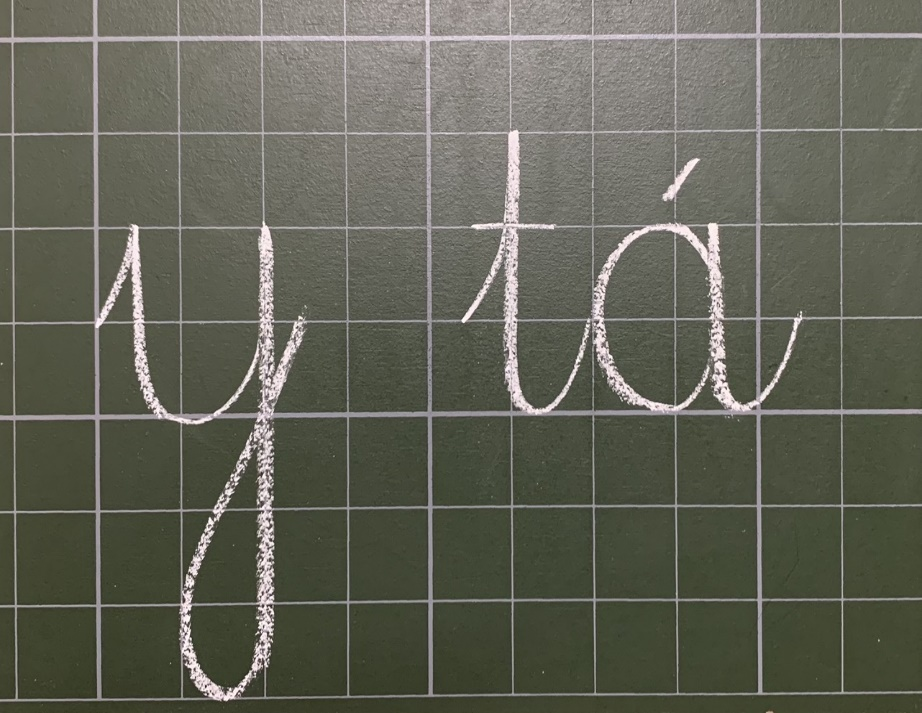 y tá